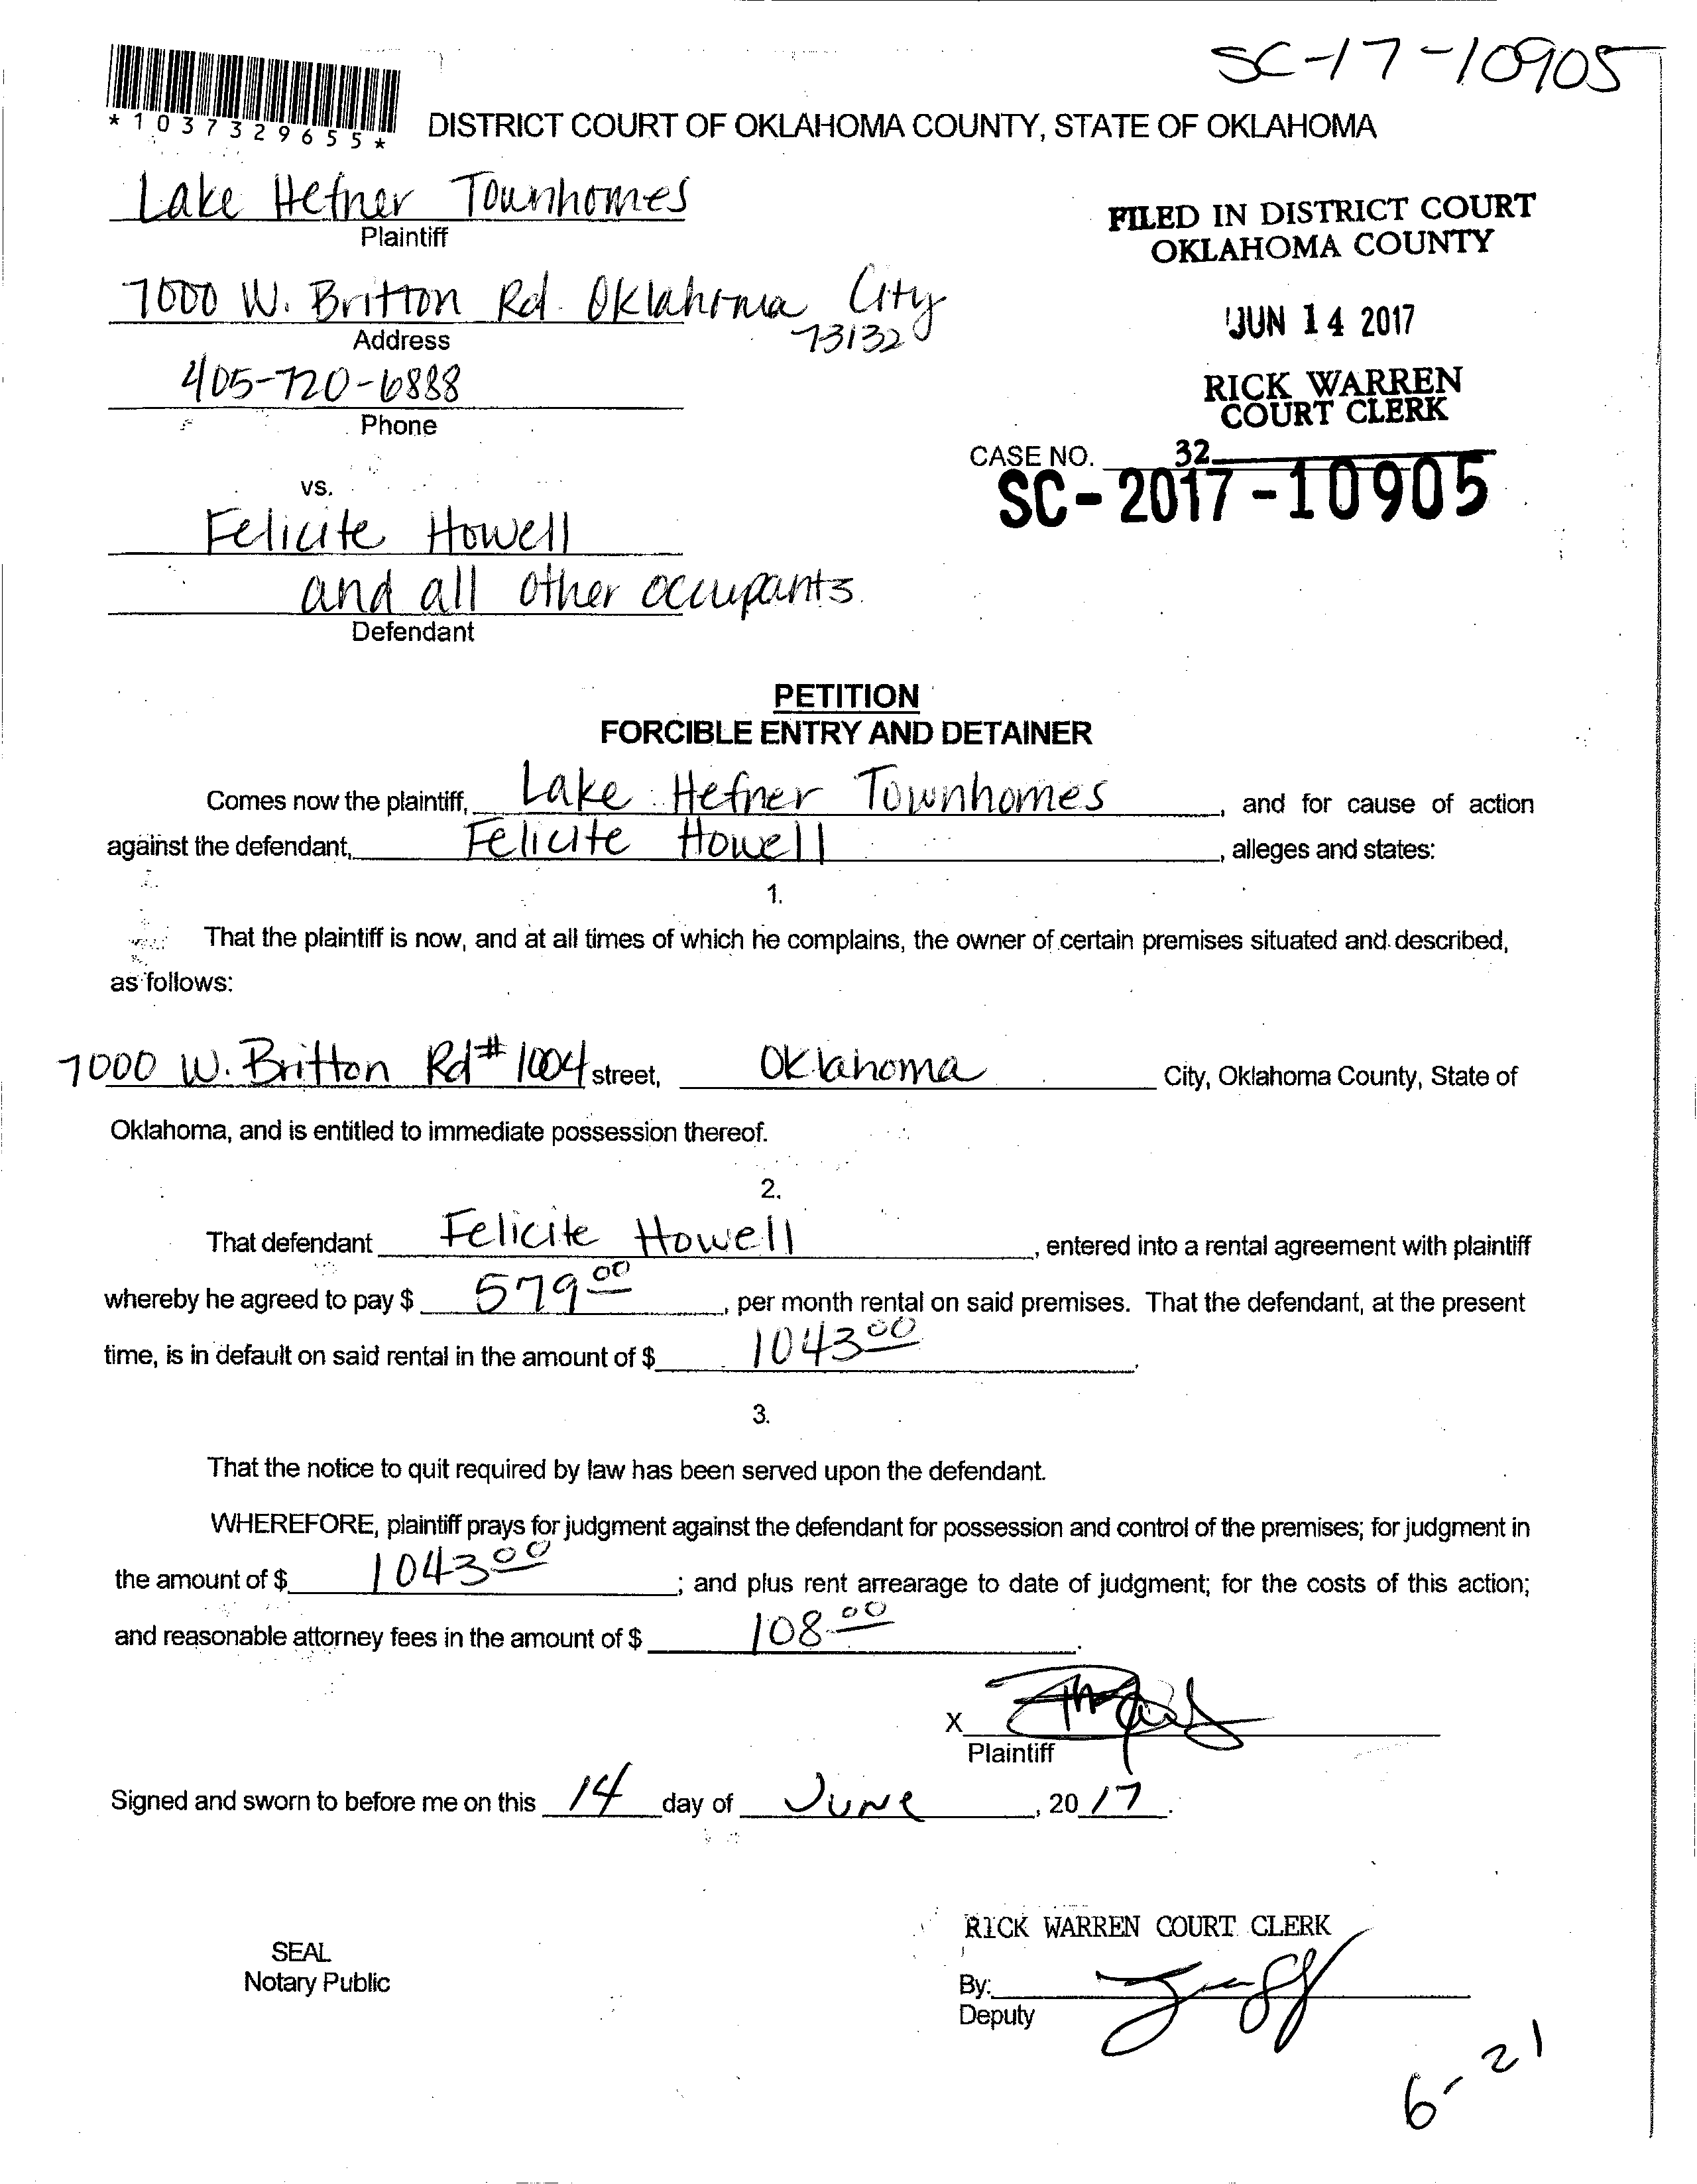 SC-17-10905
*1037329655*
DISTRICT COURT OF OKLAHOMA COUNTY, STATE OF OKLAHOMA
Lake Hefner Townhomes
Plaintiff
FILED IN DISTRICT COURT
OKLAHOMA COUNTY
7000 W. Britton Rd. Oklahoma City
73132
Address
JUN 14 2017
405-720-6888
Phone
RICK WARREN
COURT CLERK
CASE NO. 32
SC-2017-10905
vs.
Felicite Howell
and all other occupants
Defendant
PETITION
FORCIBLE ENTRY AND DETAINER
Comes now the plaintiff, Lake Hefner Townhomes, and for cause of action
against the defendant, Felicite Howell, alleges and states:
1.
That the plaintiff is now, and at all times of which he complains, the owner of certain premises situated and described,
as follows:
7000 W. Britton Rd # 1004 street, Oklahoma City, Oklahoma County, State of
Oklahoma, and is entitled to immediate possession thereof.
2.
That defendant Felicite Howell, entered into a rental agreement with plaintiff
whereby he agreed to pay $ 579 00, per month rental on said premises. That the defendant, at the present
time, is in default on said rental in the amount of $ 1043 00.
3.
That the notice to quit required by law has been served upon the defendant.
WHEREFORE, plaintiff prays for judgment against the defendant for possession and control of the premises; for judgment in
the amount of $ 1043 00; and plus rent arrearage to date of judgment; for the costs of this action;
and reasonable attorney fees in the amount of $ 108 00.
X
Plaintiff
Signed and sworn to before me on this 14 day of June, 20 17.
RICK WARREN COURT CLERK
SEAL
Notary Public
By:
Deputy
6-21